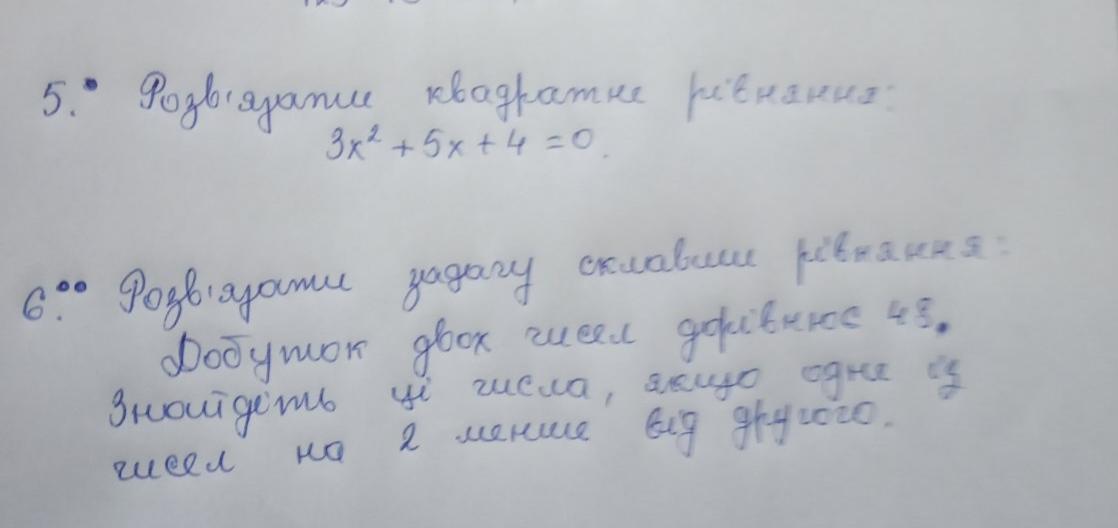 5.• Розв'язати квадратне рівняння:
3x² + 5x + 4 = 0.
6.°° Розв'язати задачу склавши рівняння:
Добуток двох чисел дорівнює 48.
Знайдіть ці числа, якщо одне із
чисел на 2 менше від другого.